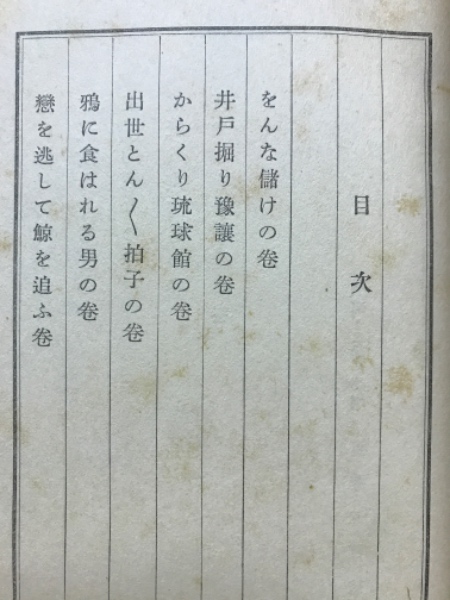 目次
をんな儲けの卷
井戸掘り豫讓の卷
からくり琉球館の卷
出世とん〱拍子の卷
鴉に食はれる男の卷
戀を逃して鯨を追ふ卷